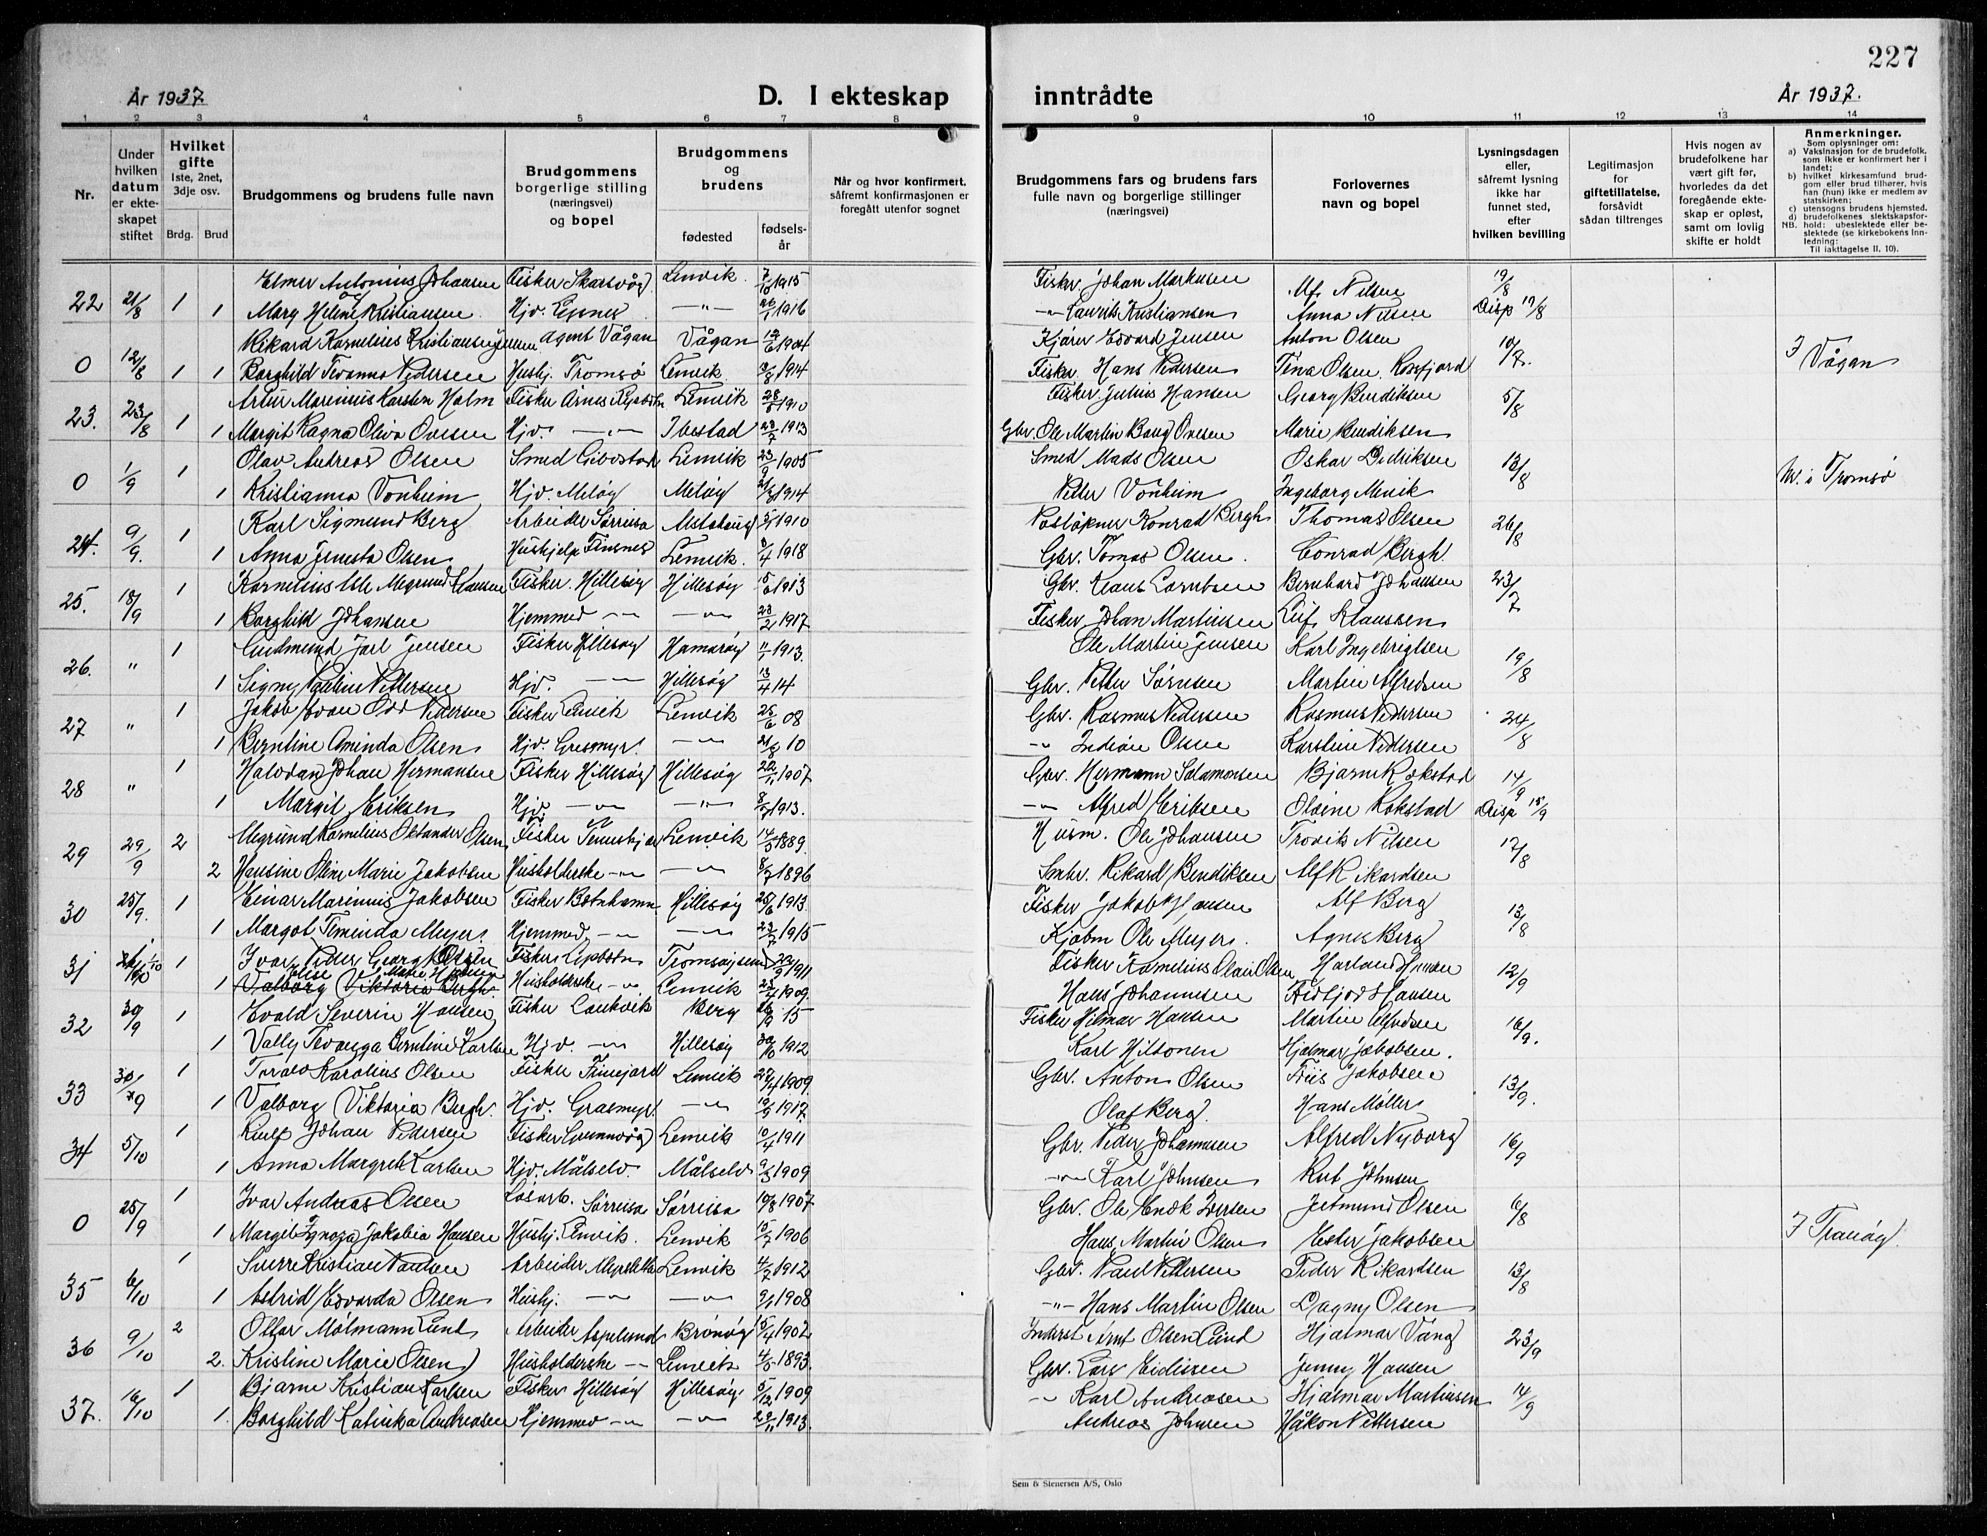 227
År 1937.
D. I ekteskap
inntrådte
År 1937.
1 2 3 4 5 6 7 8 9 10 11 12 13 14
Nr.
Under hvilken datum er ekteskapet stiftet
Hvilket gifte
1ste, 2net, 3dje osv.
Brdg. Brud
Brudgommens og brudens fulle navn
Brudgommens borgerlige stilling (næringsvei) og bopel
Brudgommens og brudens
fødested
fødselsår
Når og hvor konfirmert, såfremt konfirmasjonen er foregått utenfor sognet
Brudgommens fars og brudens fars fulle navn og borgerlige stillinger (næringsvei)
Forlovernes navn og bopel
Lysningsdagen eller, såfremt lysning ikke har funnet sted, efter hvilken bevilling
Legitimasjon for giftetillatelse, forsåvidt sådan tiltrenges
Hvis nogen av brudefolkene har vært gift før, hvorledes da det foregående ekteskap er opløst, samt om lovlig skifte er holdt
Anmerkninger.
Som oplysninger om:
a) Vaksinasjon for de brudefolk, som ikke er konfirmert her i landet;
b) hvilket kirkesamfund brudgom eller brud tilhører, hvis han (hun) ikke er medlem av statskirken;
c) utensogns brudens hjemsted.
d) brudefolkenes slektskapsforhold: ubeslektede eller beslektede (se kirkebokens Innledning: Til iakttagelse II, 10).
NB.
22 21/8 1 Elmer Antonius Johansen Fisker Skarsvåg Lenvik 7/10 1915 Fisker Johan Markusen Alf Nilsen 19/8
1 Mary Helene Kristiansen Hjv. 26/1 1916 -"- Laurits Kristiansen Anna Nilsen Disp 19/8
0 12/8 1 Rikard Kornelius Kristiansen Jensen Agent Vågan Vågan 12/6 1904 Edvard Jensen Anton Olsen 10/7.
1 Borghild Jevanna Pedersen Hushj. Tromsø Lenvik 1914 Fisker Hans Pedersen Tina Olsen. Rossfjord I Vågan
23. 23/8 1 Artur Marinius Karsten Holm Fisker Årnes Lenvik 28/8 1910 Fisker Julius Hansen Georg Bendiksen 5/8
1 Margit Ragna Oliva Ovesen Hjv. -"- Ibestad 23/7 1913 Gbr. Ole Martin Bang Ovesen Marie Bendiksen
0 1/9 1 Olav Andreas Olsen Smed Gibostad Lenvik 23/9 1905 Smed Mads Olsen Oskar Didriksen 13/8
1 Kristianna Vonheim Hjv. Meløy Meløy 1914 Petter Vonheim Ingeborg V. i Tromsø
24. 9/9. 1 Karl Sigmund Berg Arbeider Sørreisa Alstahaug 1910 Konrad Bergh Thomas Olsen 26/8
1 Anna Olsen Hushjelp Finsnes Lenvik. 1918 Gbr. Tomas Olsen. Conrad Bergh.
25. 18/9 1 Kornelius Megrund Klausen Fisker. Hillesøy Hillesøy 1913 Gbr. Klaus Bernhard Johansen 23/7
1 Borghild Johansen Hjemmed -"- -"- 28/2 1917 Fisker Johan Martinsen Leif Klaussen
26. " 1 Gudmund Jarl Jensen Fisker Hillesøy Hamarøy 1913. Ole Martin Jensen Karl Ingebrigtsen 19/8
1 Signy Pauline Pettersen Hjv. -"- Hillesøy 13/4 14 Gbr. Petter Sørnsen Martin Alfredsen
27 " 1 Jakob Evan Odd Pedersen Fisker Lenvik Lenvik 25/6 08 Gbr. Rasmus Pedersen Rasmus Pedersen 24/8
1 Berntine Aminda Olsen Hjv. Gresmyr. -"- 21/8 10 -"- Olsen Karstine Pedersen
28 " 1 Halvdan Johan Hermansen Fisker Hillesøy Hillesøy 1907 Gbr. Hermann Salamonsen Bjarne Rokstad 14/9
1 Margit Eriksen Hjv -"- -"- 1913. -"- Alfred Eriksen Olaine Rokstad Disp 15/9
29 29/9 2 Megrund Kornelius Oktander Olsen Fisker Lenvik 14/5 1889. Husm. Ole Johansen Trovik Nilsen 17/8
2 Hansine Oline Marie Jakobsen Husholderske -"- -"- 8/7 1896 Smbr. Rikard Bendiksen Alf Rikardsen
30 25/9. 1 Einar Marinius Jakobsen Fisker Botnhamn Hillesøy 25/6 1913. Fisker Jakob Hansen Alf Berg 13/8
1 Margot Jeminda Meyer. Hjemmed. -"- -"- 23/7 1915 Kjøbm Ole Meyer. Agnes Berg
31 1/10 1 Ivar Peder Georg Olsen Fisker Tromsøysund 1911 Fisker Kornelius Olai Olsen Harland Hansen 12/9
1 Elise Marie Hansen Valborg Viktoria Bergh. Husholderske -"- Lenvik 1909. Hans Johannesen Hansen
32 30/9 1 Evald Severin Hansen Fisker Laukvik Berg 26/9 15 Fisker Hilmar Hansen Martin Alfredsen 16/9.
1 Vally Jevanga Berntine Karlsen Hjv. -"- Hillesøy 30/10 1912 Karl Hiltonen Hjalmar Jakobsen.
33 30/9 1 Torald Karolius Olsen Fisker Finnfjord Lenvik 27/4 1909. Gbr. Anton Olsen Friis Jakobsen 13/9.
1 Valborg Viktoria Bergh. Hjv. Grasmyr. -"- 1917. Olaf Berg. Hans Möller
34 5/10 1 Johan Pedersen Fisker Lenvik 10/4 1911 Gbr. Peder Johannesen Alfred Nyborg 16/9
1 Anna Margret Karlsen Hjv. Målselv Målselv 9/3 1909 -"- Karl Johnsen Rut Johnsen
0 25/9 1 Ivar Andreas Olsen Løsarb. Sørreisa Sørreisa 19/8 1907 Gbr. Ole Iversen Jetmund Olsen 6/8
1 Margit Jakobia Hansen Hushj. Lenvik. Lenvik 15/7 1906 Hans Martin Olsen Ester Jakobsen I Tranøy
35 6/10 1 Sverre Kristian Paulsen Arbeider Lenvik 4/7 1912 Gbr. Paul Pettersen Peder Rikardsen 13/8
1 Astrid Edvarda Olsen Hushj. -"- -"- 9/1 1908 -"- Hans Martin Olsen Dagny Olsen
36 9/10 2 Ottar Molmann Lund Arbeider Aspelund Brønøy 15/4 1902 Inderst Arnt Olsen Lund Hjalmar Vang 23/9
2. Kristine Marie Olsen Husholderske -"- Lenvik 4/5 1893. Gbr. Lars Eidissen Jenny Hansen
37. 16/10 1 Bjarne Kristian Karlsen Fisker Hillesøy Hillesøy 5/12 1909 -"- Karl Andreasen Hjalmar Martinsen 14/9
1. Borghild Katinka Andreasen Hjemmed -"- -"- 1913. Andreas Johnsen Håkon Pettersen
Sem & Stenersen A/S, Oslo